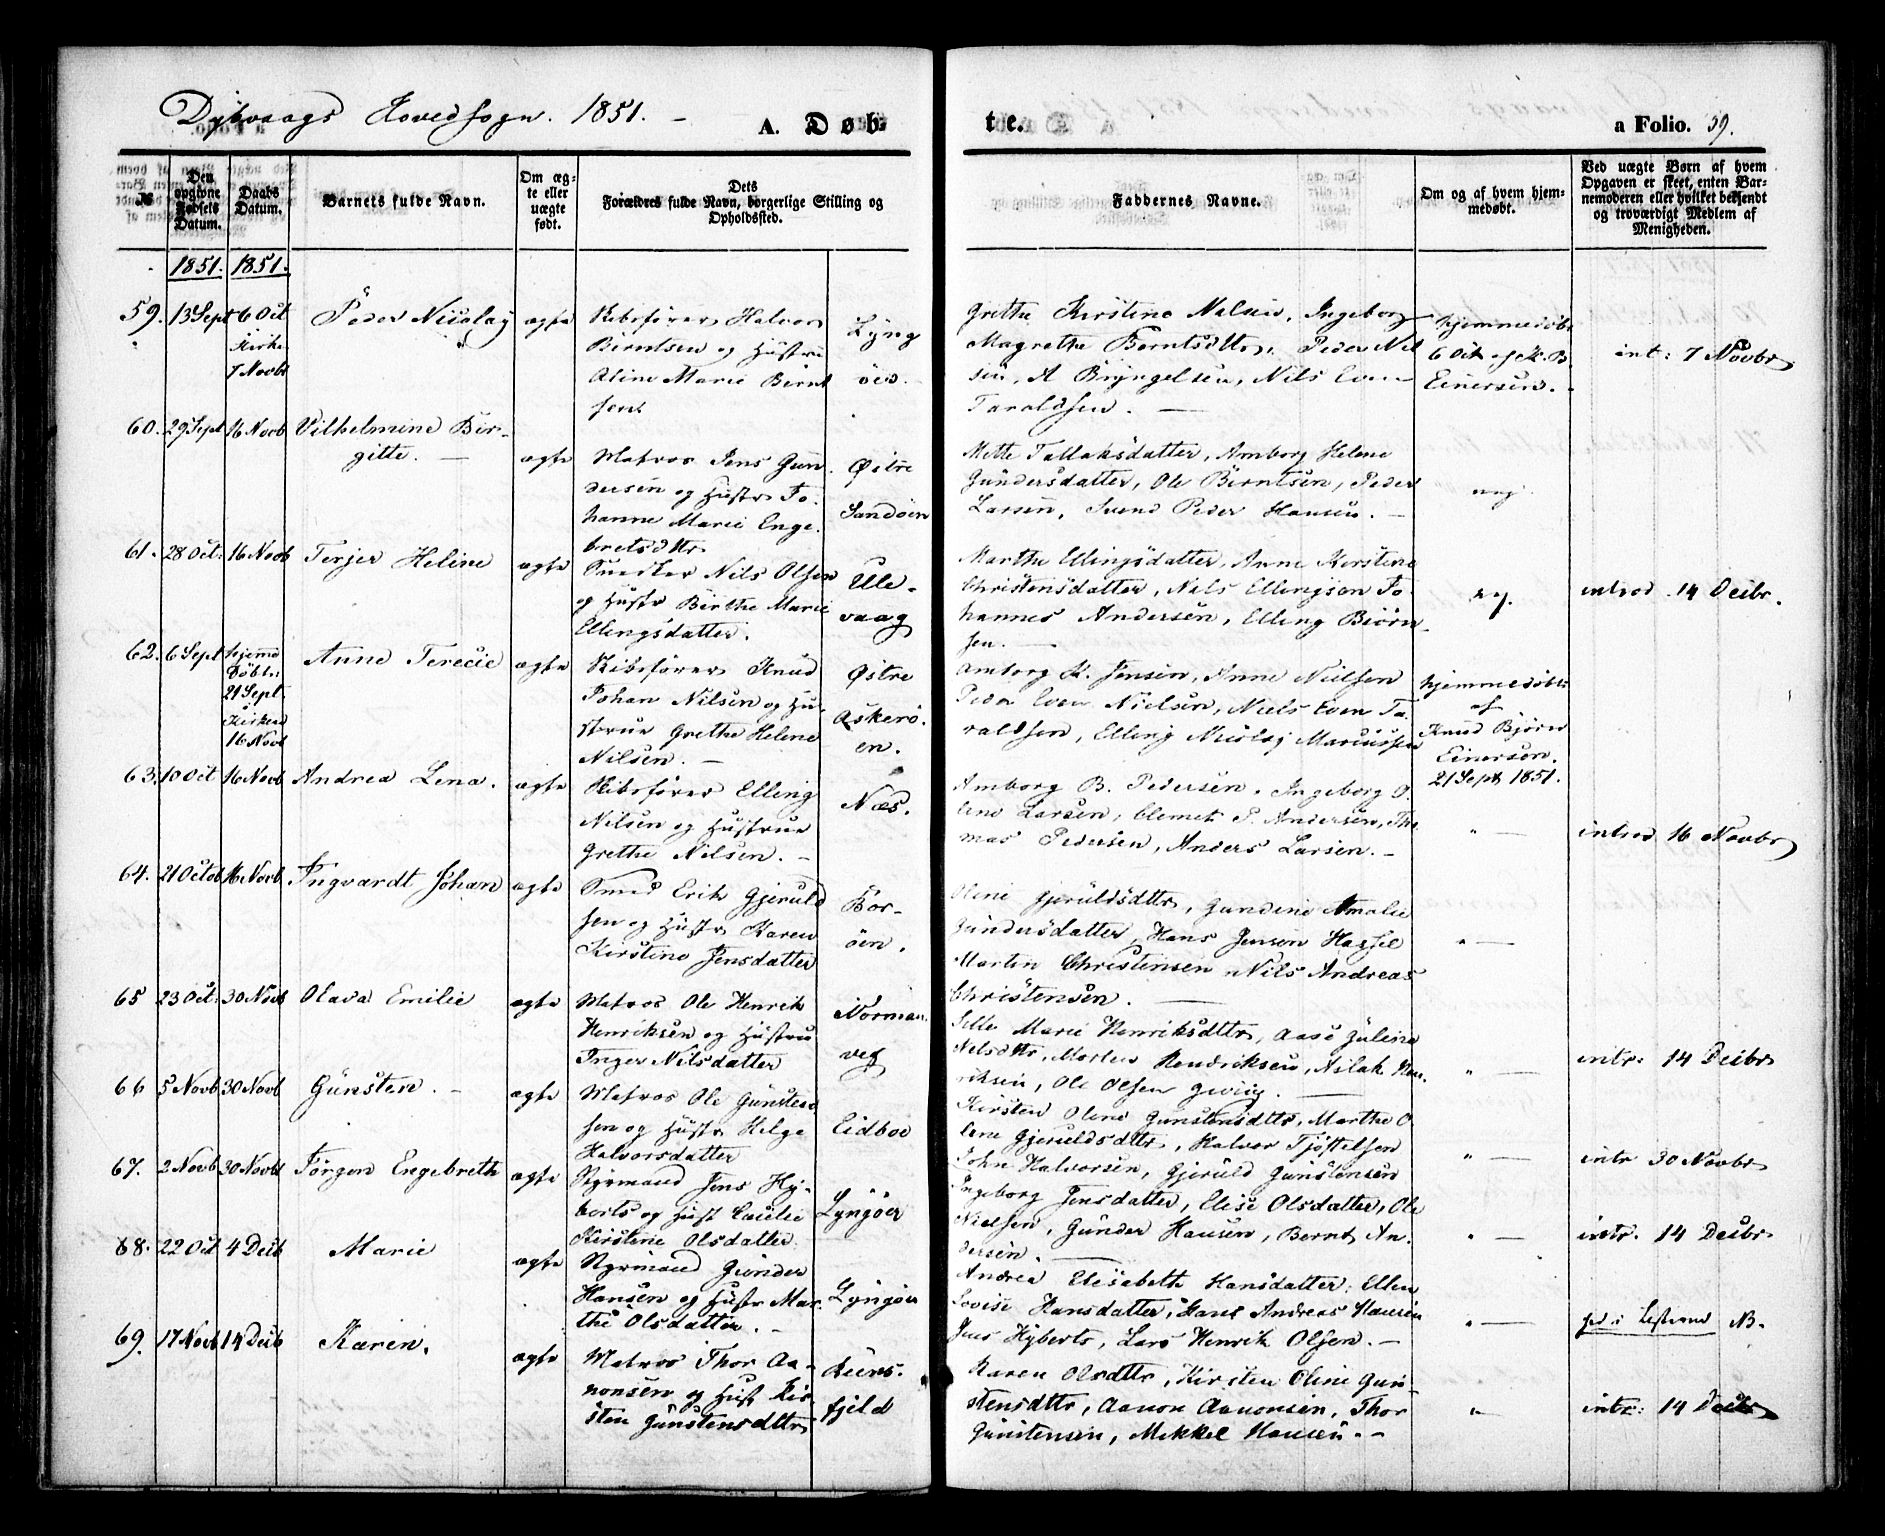 Dybvaags Hovedsogn. 1851. -
A. Døb
te.
a Folio. 59.
№
Den opgivne Fødsels Datum.
Daabs Datum.
Barnets fulde Navn.
Om ægte eller uægte født.
Dets Forældres fulde Navn, borgerlige Stilling og Opholdssted.
Faddernes Navne.
Om og af hvem hjemmedøbt.
Ved uægte Børn af hvem Opgaven er skeet, enten Barnemoderen eller hvilket bekjendt og troværdigt Medlem af Menigheden.
1851. 1851.
59. 13 Sept 6 Oct Kirke 7 Novb
Peder Nicolay
ægte
Skibsfører Halvor
Berntsen og Hustru
Aline Marie Bernt
sen
Lyng
öer.
Grethe Kirstine Nielsen, Ingeborg
Magrethe Berntsdttr, Peder Nil
sen, A Bryngelsen, Nils Even
Taraldsen. —
hjemmedøbt
6 Oct af K. B.
Einersen.
int: 7 Novbr
60. 29 Sept 16 Novb
Vilhelmine Bir-
gitte. —
ægte
Matros Jens Gun
dersen og Hustr Jo-
hanne Marie Enge
bretsdttr
Østre
Sandöen
Mette Tallaksdatter, Amborg Helene
Gundersdatter, Ole Berntsen, Peder
Larsen, Svend Peder Hansen. —
nej
61. 28 Oct. 16 Novb
Terjer Heline
ægte
Snedker Nils Olsen
og Hustr Birthe Marie
Ellingsdatter.
Ule-
vaag
Marthe Ellingsdatter, Anne Kerstine
Christensdatter, Nils Ellingsen Jo-
hannes Andersen, Elling Biörn-
sen. —
nej.
introd. 14 Decbr.
62. 6 Sept hjeme Döbt: 21 Sept i Kirken 16 Novb
Anne Terecie
ægte
Skibsfører Knud
Johan Nilsen og Hu-
strue Grethe Helene
Nilsen. —
Østre
Askerö-
en.
Amborg K. Jensen, Anne Nielsen
Peder Even Nielsen, Niels Even Ta-
raldsen, Elling Nicolaj Marcussen
hjemmedöbt
af
Knud Björn
Einersen.
21 Sept 1851.
63. 10 Oct 16 Novb
Andrea Lena.
ægte
Skibsfører Elling
Nilsen og Hustrue
Grethe Nilsen. —
Næs.
Amborg B. Pedersen, Ingeborg O-
line Larsen, Clemet P. Andersen, Tho
mas Pedersen, Anders Larsen. —
" —
introd 16 Novbr
64. 21 Octob 16 Novb
Ingvardt Johan
ægte
Smed Erik Gjeruld
sen og Hustr Karen
Kirstine Jensdatter
Bor-
öen.
Oline Gjeruldsdttr, Gundine Amalie
Gundersdatter, Hans Jensen Hassel
Marten Christensen, Nils Andreas
Christensen. —
" —
65 23 Oct. 30 Novb
Olava Emilie
ægte
Matros Ole Henrik
Henriksen og Hustru
Inger Nilsdatter
Norman
veg
Sille Marie Henriksdttr, Aase Juline
Nilsdttr, Morten Hendriksen, Nilak Hen-
riksen, Ole Olsen Gjeving. —
" —
intr: 14 Decbr
66 5 Novb 30 Novb
Gunsten. —
ægte
Matros Ole Gunsten
sen og Hustr Helge
Halvorsdatter
Eidboe
Kirsten Oline Gunstensdttr, Marthe O-
line Gjeruldsdttr, Halvor Tjöstelsen
John Halvorsen, Gjeruld Gunstensen
" —
intr 30 Novbr
67. 2 Novb 30 Novb
Jörgen Engebreth
ægte
Styrmand Jens Hy-
berts og Hust Cecilie
Kirstine Olsdatter
Lyngöer
Ingeborg Jensdatter, Elise Olsdatter, Ole
Nielsen, Gunder Hansen, Bernt An-
dersen. —
" —
intr. 14 Decbr
68. 22 Oct 4 Decb
Marie
ægte
Styrmand Gunder
Hansen og Hustr Mar-
the Olsdatter. —
Lyngöer
Andrea Elisabeth Hansdatter, Ellen
Lovise Hansdatter, Hans Andreas Hansen
Jens Hyberts, Lars Henrik Olsen. —
" —
69. 17 Novb 14 Decb
Karen.
ægte
Matros Thor Aa-
nonsen og Hust Kir-
sten Gunstensdttr
fjeld
Karen Olsdttr, Kirsten Oline Gun-
stensdttr, Aanon Aanonsen, Thor
Gunstensen, Mekkel Hansen. —
"
intr: 14 Decbr